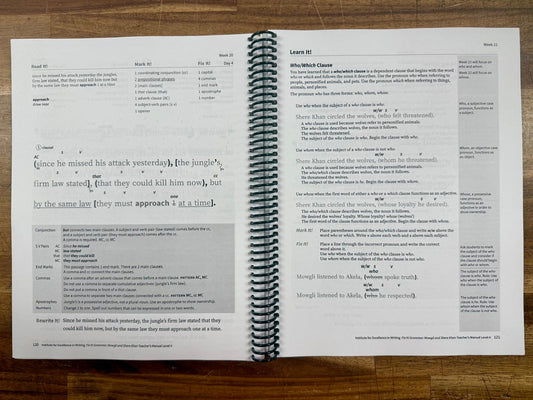 Week 20
Read It!
Mark It!
Fix It!
Day 4
since he missed his attack yesterday the jungles,
firm law stated, that they could kill him now but
by the same law they must approach 1 at a time
1 coordinating conjunction (cc)
2 prepositional phrases
2 [main clauses]
1 that clause (that)
1 adverb clause (AC)
4 subject-verb pairs (s v)
1 opener
1 capital
4 commas
1 end mark
1 apostrophe
1 number
approach
draw near
clause
s v
AC
(since he missed his attack yesterday), [the jungle's,
v that s v
firm law stated], (that they could kill him now), but
s v one
by the same law [they must approach 1 at a time].
Conjunction
But connects two main clauses. A subject and verb pair (law stated) comes before the cc,
and a subject and verb pair (they must approach) comes after the cc.
A comma is required. MC, cc MC
S V Pairs
AC (Since) he missed
MC law stated
that (that) they could kill
MC they must approach
End Marks
This passage contains 1 end mark. There are 2 main clauses.
A comma and cc connect the main clauses.
Commas
Use a comma after an adverb clause that comes before a main clause. PATTERN AC, MC
Do not use a comma to separate cumulative adjectives (jungle's firm law).
Do not put a comma in front of a that clause.
Use a comma to separate two main clauses connected with a cc. PATTERN MC, cc MC
Apostrophes
Jungle's is a possessive adjective, not a plural noun. Use an apostrophe to show ownership.
Numbers
Change 1 to one. Spell out numbers that can be expressed in one or two words.
Rewrite It!
Since he missed his attack yesterday, the jungle's firm law stated that they
could kill him now, but by the same law they must approach one at a time.
120
Institute for Excellence in Writing Fix It! Grammar: Mowgli and Shere Khan Teacher's Manual Level 4
Week 21
Learn It!
Who/Which Clause
You have learned that a who/which clause is a dependent clause that begins with the word
who or which and follows the noun it describes. Use the pronoun who when referring to
people, personified animals, and pets. Use the pronoun which when referring to things,
animals, and places.
The pronoun who has three forms: who, whom, whose.
Use who when the subject of a who clause is who.
w/w s v
Shere Khan circled the wolves, (who felt threatened).
A who clause is used because wolves refer to personified animals.
The who clause describes wolves, the noun it follows.
The wolves felt threatened.
The subject of the who clause is who. Begin the clause with who.
Use whom when the subject of a who clause is not who.
w/w s v
Shere Khan circled the wolves, (whom he threatened).
A who clause is used because wolves refer to personified animals.
The who clause describes wolves, the noun it follows.
He threatened the wolves.
The subject of the who clause is he. Begin the clause with whom.
Use whose when the first word of either a who or a which clause functions as an adjective.
w/w s v
Shere Khan circled the wolves, (whose loyalty he desired).
The who/which clause describes wolves, the noun it follows.
He desired the wolves' loyalty. Whose loyalty? whose (wolves')
The first word of the clause functions as an adjective. Begin the clause with whose.
Mark It!
Place parentheses around the who/which clause and write w/w above the
word who or which. Write s above each verb and s above each subject.
Fix It!
Place a line through the incorrect pronoun and write the correct
word above it.
Use who when the subject of the who clause is who.
Use whom when the subject of the who clause is not who.
w/w s v
who
Mowgli listened to Akela, (whom spoke truth).
w/w s v
whom
Mowgli listened to Akela, (who he respected).
Week 21 will focus on
who and whom.
Week 22 will focus on
whose.
Who, a subjective case
pronoun, functions as
a subject.
Whom, an objective case
pronoun, functions as
an object.
Whose, a possessive
case pronoun,
functions as an
adjective in order to
show ownership.
Ask students to mark
the subject of the who
clause and consider if
the clause should begin
with who or whom.
The subject of the who
clause is who. Rule: Use
who when the subject of
the clause is who.
The subject of the who
clause is he. Rule: Use
whom when the subject
of the clause is not who.
Institute for Excellence in Writing Fix It! Grammar: Mowgli and Shere Khan Teacher's Manual Level 4
121